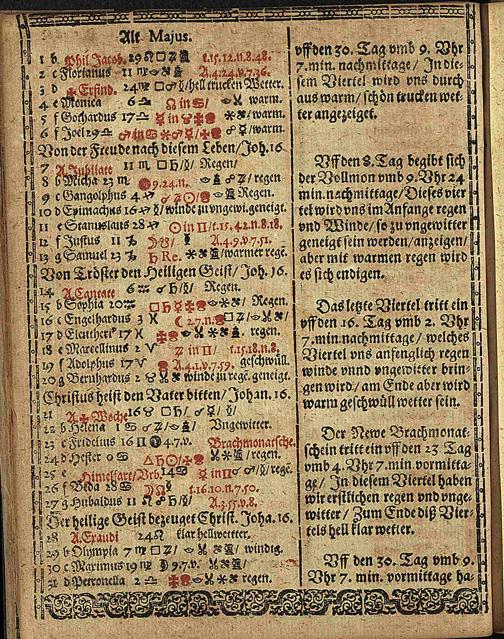 Alt Majus.
1 b Phil Jacob. 29 ♌ □ t.15.12.n.8.48.
2 c Florianus 11 ♍ A.4.24.v.7.36.
3 d ✠ Erfind. 24 ♍ □ ♂ ☿/hell trucken Wetter.
4 e Monica 6 ♎ ☊ in ♋/ warm.
5 f Gochardus 17 ♎ warm.
6 f Joel 29 ♎ warm.
Von der Freude nach diesem Leben/Joh.16.
7 A Jubilate 11 ♏ □ ♄/☿/ Regen/
8 b Micha 23 ♏ 9.24.n. regen
9 c Gangolphus 4 Regen.
10 d Epimachus 16 winde zu ungewi.geneigt.
11 e Stanislaus 28 ☉ in ♊/t.15.42.n.8.18.
12 f Justus 11 A.4.9.v.7.51.
13 g Samuel 23 ♄ Re. warmer rege.
Von Tröster den Heiligen Geist/Joh.16.
14 A Cantate 6 ♒ ♂ ♄/☿/ Regen.
15 b Sophia 20 ♒ Regen.
16 c Engelhardus 3 ♓ 2.7.n.
17 d Eleutheri 17 ♓ regen.
18 e Marcellinus 2 ♈ in ♊/ t.15.18.n.8.
19 f Adolphus 17 ♈ A.4.1.v.7.59. geschwüll.
20 g Bernhardus 2 ♉ winde zu rege.geneigt.
Christus heist den Vater bitten/Johan.16.
21 A ✠ Woche 16 ♉ □ ♄/ ♂ ☿/
22 b Helena 1 Vngewitter.
23 c Fridelius 16 ♊ 4.7.v. Brachmonatsche.
24 d Hester 0 ♋ regen.
25 e Himelfart/Vrb. 14 ♋ ☿ in ♊ ♂ ☿/ rege.
26 f Beda 28 ♋ t.16.10.n.7.50.
27 g Hubaldus 11 ♌ A.3.55.v.8.
Der heilige Geist bezeuget Christ. Joha.16.
28 A Exaudi 24 ♌ klar hellwetter.
29 b Olympia 7 ♍ windig.
30 c Maximus 19 ♍ 9.7.v.
31 d Petronella 2 ♎ regen.
vff den 30. Tag vmb 9. Vhr
7.min. nachmittage/ In die-
sem Viertel wird vns durch
aus warm/schön trucken wet-
ter angezeiget.
Vff den 8. Tag begibt sich
der Vollmon vmb 9. Vhr 24
min.nachmittage/Dieses vier
tel wird vns im Anfange regen
vnd Winde/ so zu vngewitter
geneigt sein werden/anzeigen/
aber mit warmen regen wird
es sich endigen.
Das letzte Viertel tritt ein
vff den 16. Tag vmb 2. Vhr
7.min.nachmittage/ welches
Viertel vns anfenglich regen
winde vnnd vngewitter brin-
gen wird/ am Ende aber wird
warm geschwüll wetter sein.
Der Newe Brachmonat-
schein tritt ein vff den 23 Tag
vmb 4. Vhr 7.min vormitta-
ge/ In diesem Viertel haben
wir erstlichen regen vnd vnge-
witter/ Zum Ende diß Vier-
tels hell klar wetter.
Vff den 30. Tag vmb 9.
Vhr 7. min. vormittage ha-